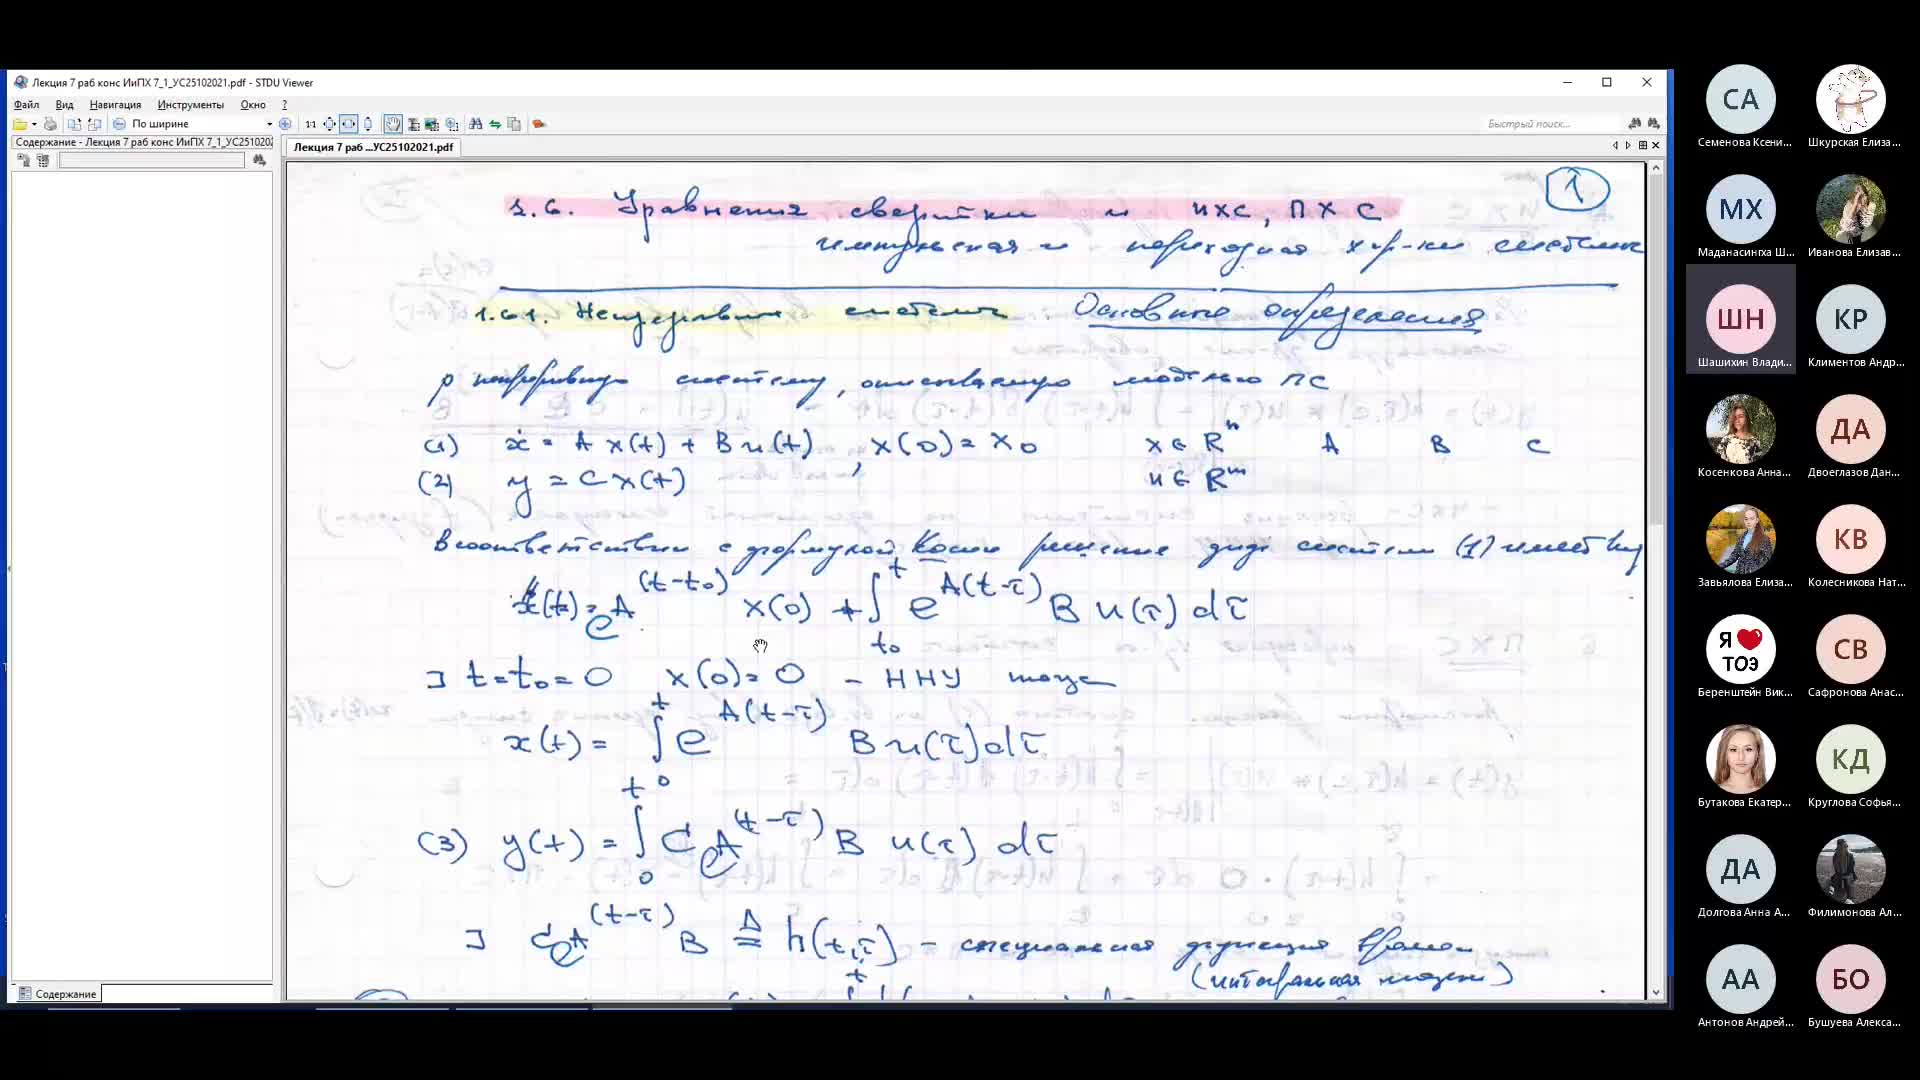 Лекция 7 раб конс ИиПХ 7_1_УС25102021.pdf - STDU Viewer
Файл Вид Навигация Инструменты Окно ?
По ширине
1:1
Быстрый поиск...
Содержание - Лекция 7 раб конс ИиПХ 7_1_УС251020
Лекция 7 раб ...УС25102021.pdf
Содержание
1
1.6. Уравнения свертки и ИХС, ПХС
импульсная и переходная хар-ки системы
1.6.1. Непрерывные системы. Основные определения
непрерывную систему, описываемую моделью ПС
(1) ẋ = A x(t) + B u(t), x(0) = x₀ x ∈ Rⁿ A B C
(2) y = C x(t) u ∈ Rᵐ
В соответствии с формулой Коши решение диф. системы (1) имеет вид
x(t) = e^{A(t-t₀)} x(0) + ∫_{t₀}^{t} e^{A(t-τ)} B u(τ) dτ
∃ t = t₀ = 0 x(0) = 0 – ННУ тогда
x(t) = ∫_{0}^{t} e^{A(t-τ)} B u(τ) dτ
(3) y(t) = ∫_{0}^{t} C e^{A(t-τ)} B u(τ) dτ
∃ C e^{A(t-τ)} B ≜ h(t,τ) – специальная функция времени
СА
Семенова Ксени...
Шкурская Елиза...
МХ
Маданасингха Ш...
Иванова Елизав...
ШН
Шашихин Влади...
КР
Климентов Андр...
Косенкова Анна...
ДА
Двоеглазов Дан...
Завьялова Елиза...
КВ
Колесникова Нат...
Я ❤ ТОЭ
Беренштейн Вик...
СВ
Сафронова Анас...
Бутакова Екатер...
КД
Круглова Софья...
ДА
Долгова Анна А...
Филимонова Ал...
АА
Антонов Андрей...
БО
Бушуева Алекса...